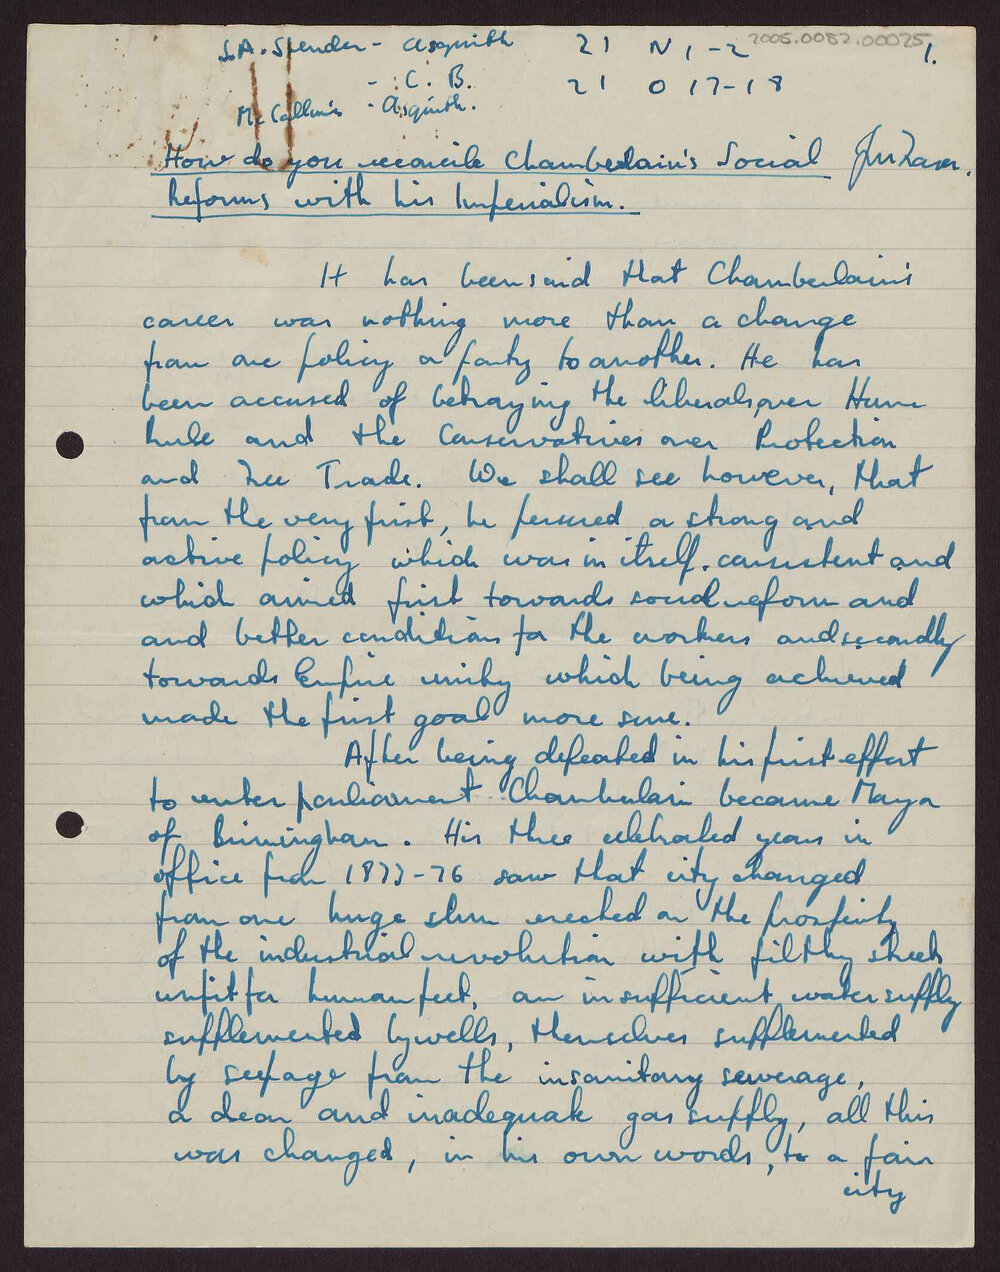 J.A. Spender - Asquith 21 N 1-2 2005.0082.00025 1.
- C. B. 21 O 17-18
McCallum's - Asquith.
How do you reconcile Chamberlain's Social
Reforms with his Imperialism.
It has been said that Chamberlain's
career was nothing more than a change
from one policy or party to another. He has
been accused of betraying the liberals over Home
Rule and the Conservatives over Protection
and Free Trade. We shall see however, that
from the very first, he persued a strong and
active policy which was in itself consistent and
which aimed first towards social reform and
and better conditions for the workers and secondly
towards Empire unity which being achieved
made the first goal more sure.
After being defeated in his first effort
to enter parliament Chamberlain became Mayor
of Birmingham. His three celebrated years in
office from 1873-76 saw that city changed
from one huge slum erected on the prosperity
of the industrial revolution with filthy streets
unfit for human feet, an insufficient water supply
supplemented by wells, themselves supplemented
by seepage from the insanitary sewerage,
a dear and inadequate gas supply, all this
was changed, in his own words, to a fair
city